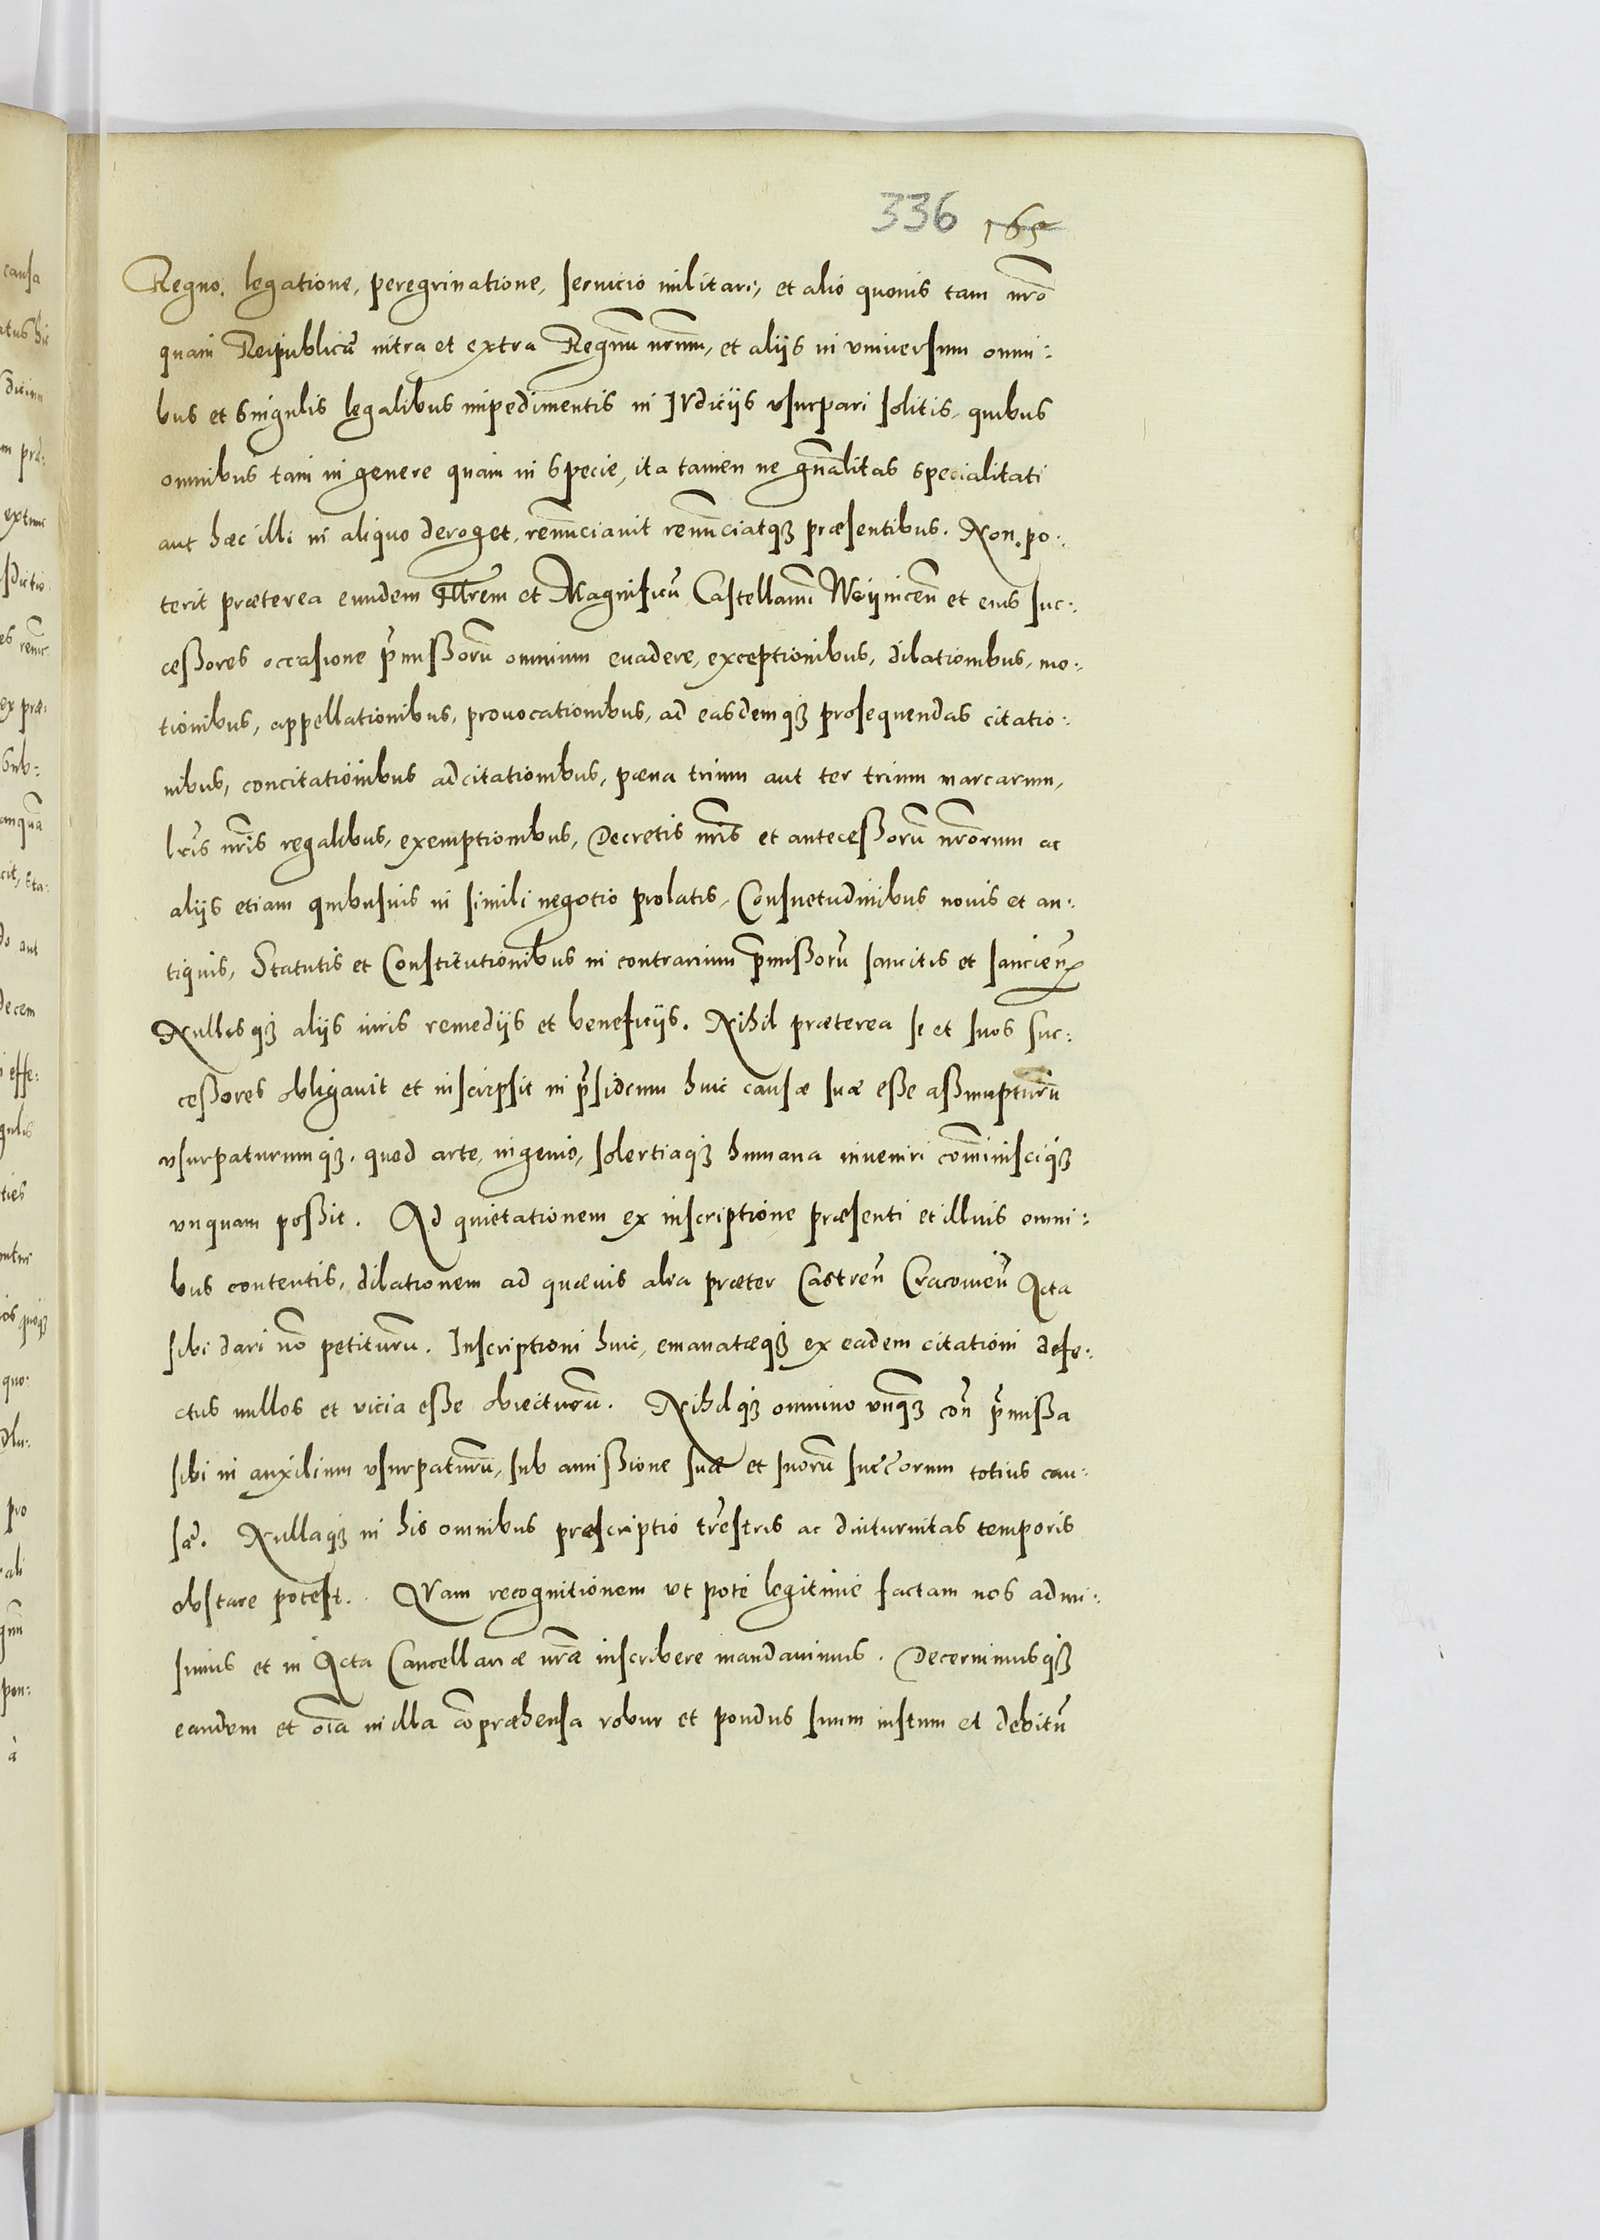 336 165
Regno, legatione, peregrinatione, seruicio militari, et alio quouis tam nr̃o
quam Reipublicæ intra et extra Regnũ nr̃um, et alijs in vniuersum omni:
bus et singulis legalibus impedimentis in IVdicijs vsurpari solitis, quibus
omnibus tam in genere quam in specie, ita tamen ne gñalitas specialitati
aut hæc illi in aliquo deroget, renũciauit renũciatqȝ præsentibus. Non po:
terit præterea eundem Illrẽm et Magnificũ Castellanũ Woynicen̄ et eius suc:
cessores occasione p̄missorũ omnium euadere, exceptionibus, dilationibus, mo:
tionibus, appellationibus, prouocationibus, ad easdemqȝ prosequendas citatio:
nibus, concitationibus adcitationibus, pæna trium aut ter trium marcarum,
lr̃is nr̃is regalibus, exemptionibus, Decretis nr̃is et antecessorũ nr̃orum ac
alijs etiam quibusuis in simili negotio prolatis, Consuetudinibus nouis et an:
tiquis, Statutis et Constitutionibus in contrarium p̄missorũ sancitis et sancien̄
Nullisqȝ alijs iuris remedijs et beneficijs. Nihil præterea se et suos suc:
cessores obligauit et inscripsit in p̄sidium huic causæ suæ esse assumpturũ
vsurpaturumqȝ, quod arte, ingenio, solertiaqȝ humana inueniri com̃inisciqȝ
vnquam possit. Ad quietationem ex inscriptione præsenti et illius omni:
bus contentis, dilationem ad quæuis alia præter Castren̄ Cracouien̄ Acta
sibi dari nõ petiturũ. Inscriptioni huic, emanatæqȝ ex eadem citationi defe:
ctus nullos et vicia esse obiecturũ. Nihilqȝ omnino vnqȝ con̄ p̄missa
sibi in auxilium vsurpaturũ, sub amissione suæ et suorũ succ̃orum totius cau:
sæ. Nullaqȝ in his omnibus præscriptio tr̃estris ac diuturnitas temporis
obstare potest. QVam recognitionem vt pote legitimè factam nos admi:
simus et in Acta Cancellariæ nr̃æ inscribere mandauimus. Decernimusqȝ
eandem et oĩa in illa cõpræhensa robur et pondus suum iustum et debitũ